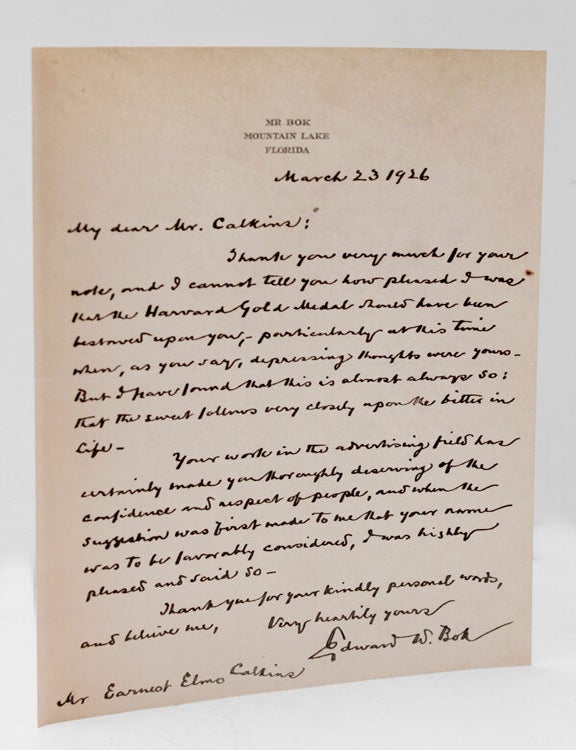 MR BOK
MOUNTAIN LAKE
FLORIDA
March 23 1926
My dear Mr. Calkins:
Thank you very much for your
note, and I cannot tell you how pleased I was
that the Harvard Gold Medal should have been
bestowed upon you,- particularly at this time
when, as you say, depressing thoughts were yours-
But I have found that this is almost always so:
that the sweet follows very closely upon the bitter in
life-
Your work in the advertising field has
certainly made you thoroughly deserving of the
confidence and respect of people, and when the
suggestion was first made to me that your name
was to be favorably considered, I was highly
pleased and said so-
Thank you for your kindly personal words,
and believe me,
Very heartily yours
Edward W. Bok
Mr Earnest Elmo Calkins